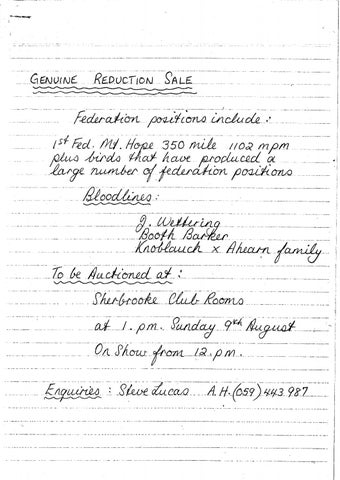 GENUINE REDUCTION SALE
Federation positions include :
1st Fed. Mt. Hope 350 mile 1102 mpm
plus birds that have produced a
large number of federation positions
Bloodlines :
J. Wettering
Booth Barker
Knoblauch x Ahearn family
To be Auctioned at :
Sherbrooke Club Rooms
at 1. pm. Sunday 9th August
On Show from 12. pm.
Enquiries : Steve Lucas A.H. (059) 443 987